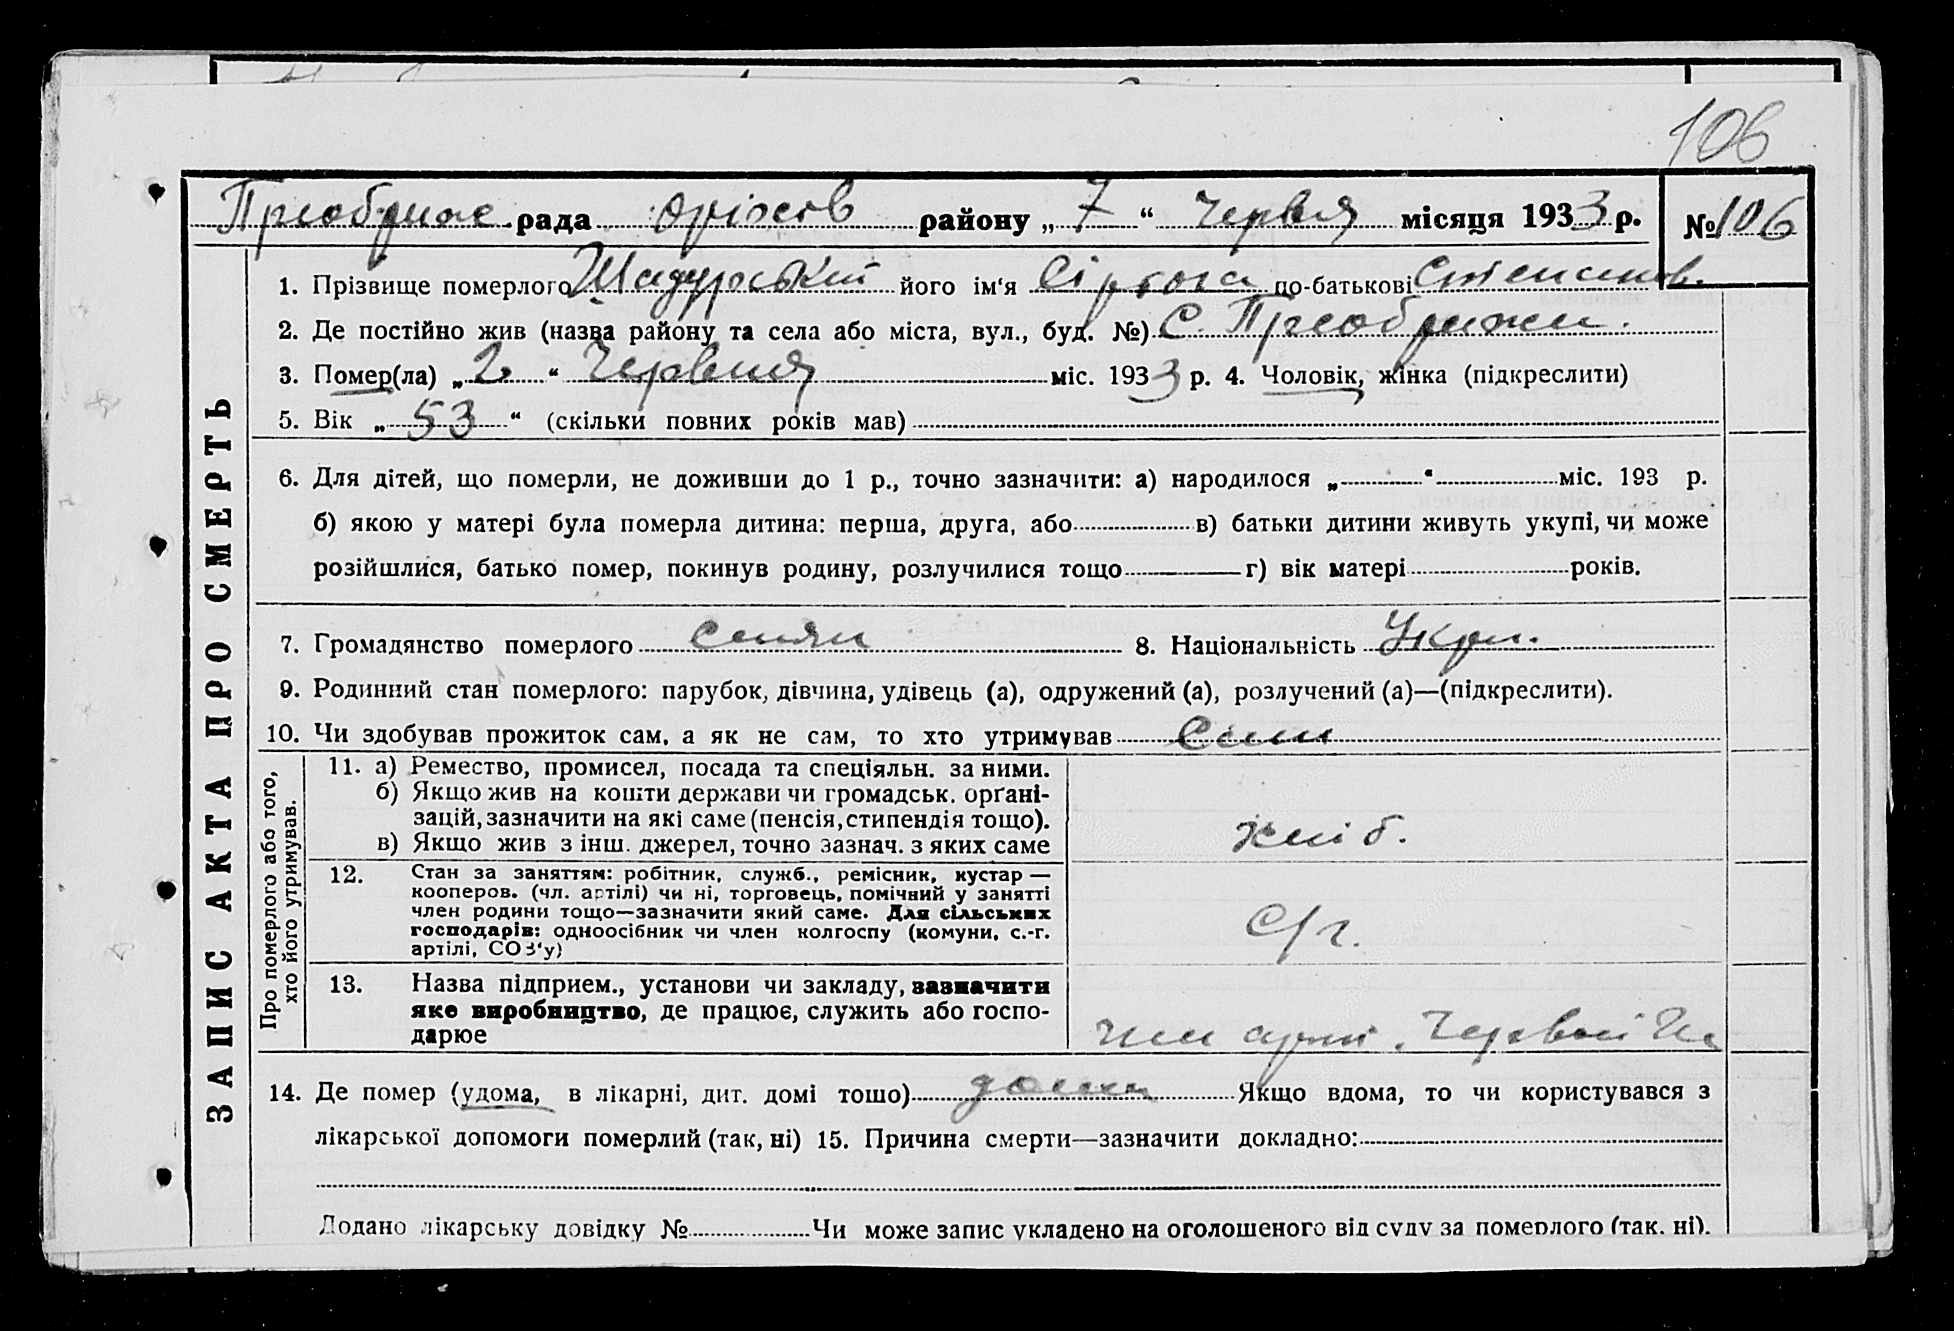 106
Преображе рада Оріхов району „7“ Червня місяця 1933 р. № 106
1. Прізвище померлого Шадурський його ім'я Сірьога по-батькові Степанов.
2. Де постійно жив (назва району та села або міста, вул., буд. №) С. Преображен.
3. Помер(ла) „2“ Червня міс. 1933 р. 4. Чоловік, жінка (підкреслити)
5. Вік „53“ (скільки повних років мав)
6. Для дітей, що померли, не доживши до 1 р., точно зазначити: а) народилося „ “ міс. 193 р.
б) якою у матері була померла дитина: перша, друга, або в) батьки дитини живуть укупі, чи може
розійшлися, батько помер, покинув родину, розлучилися тощо г) вік матері років.
7. Громадянство померлого селян 8. Національність Укра.
9. Родинний стан померлого: парубок, дівчина, удівець (а), одружений (а), розлучений (а)—(підкреслити).
10. Чи здобував прожиток сам, а як не сам, то хто утримував Сам
ЗАПИС АКТА ПРО СМЕРТЬ
Про померлого або того,
хто його утримував.
11. а) Ремество, промисел, посада та спеціяльн. за ними.
б) Якщо жив на кошти держави чи громадськ. орґані-
зацій, зазначити на які саме (пенсія, стипендія тощо).
в) Якщо жив з інш. джерел, точно зазнач. з яких саме
хліб.
12. Стан за заняттям: робітник, служб., ремісник, кустар —
кооперов. (чл. артілі) чи ні, торговець, помічний у занятті
член родини тощо—зазначити який саме. Для сільських
господарів: одноосібник чи член колгоспу (комуни, с.-г.
артілі, СОЗ'у)
С/г.
13. Назва підприєм., установи чи закладу, зазначити
яке виробництво, де працює, служить або госпо-
дарює
член артіл. Червоний
14. Де помер (удома, в лікарні, дит. домі тощо) дома Якщо вдома, то чи користувався з
лікарської допомоги померлий (так, ні) 15. Причина смерти—зазначити докладно:
Додано лікарську довідку № Чи може запис укладено на оголошеного від суду за померлого (так, ні).